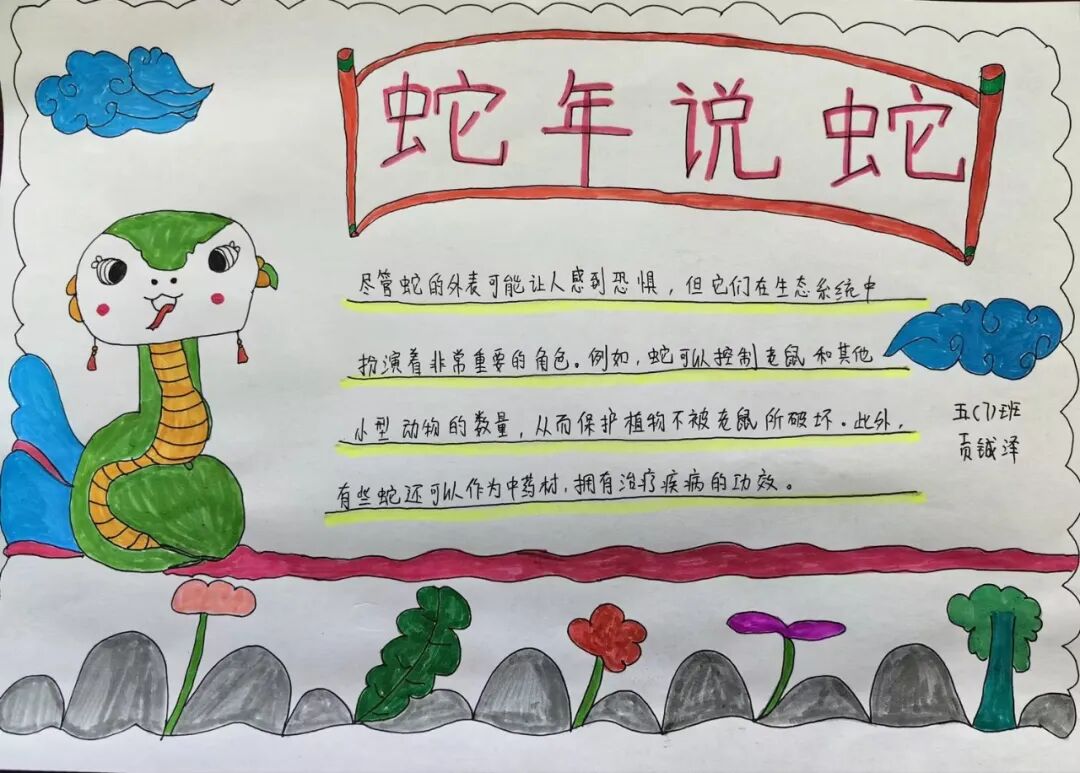 蛇年说蛇
尽管蛇的外表可能让人感到恐惧，但它们在生态系统中
扮演着非常重要的角色。例如，蛇可以控制老鼠和其他
小型动物的数量，从而保护植物不被老鼠所破坏。此外，
有些蛇还可以作为中药材，拥有治疗疾病的功效。
五(7)班
贡铖泽